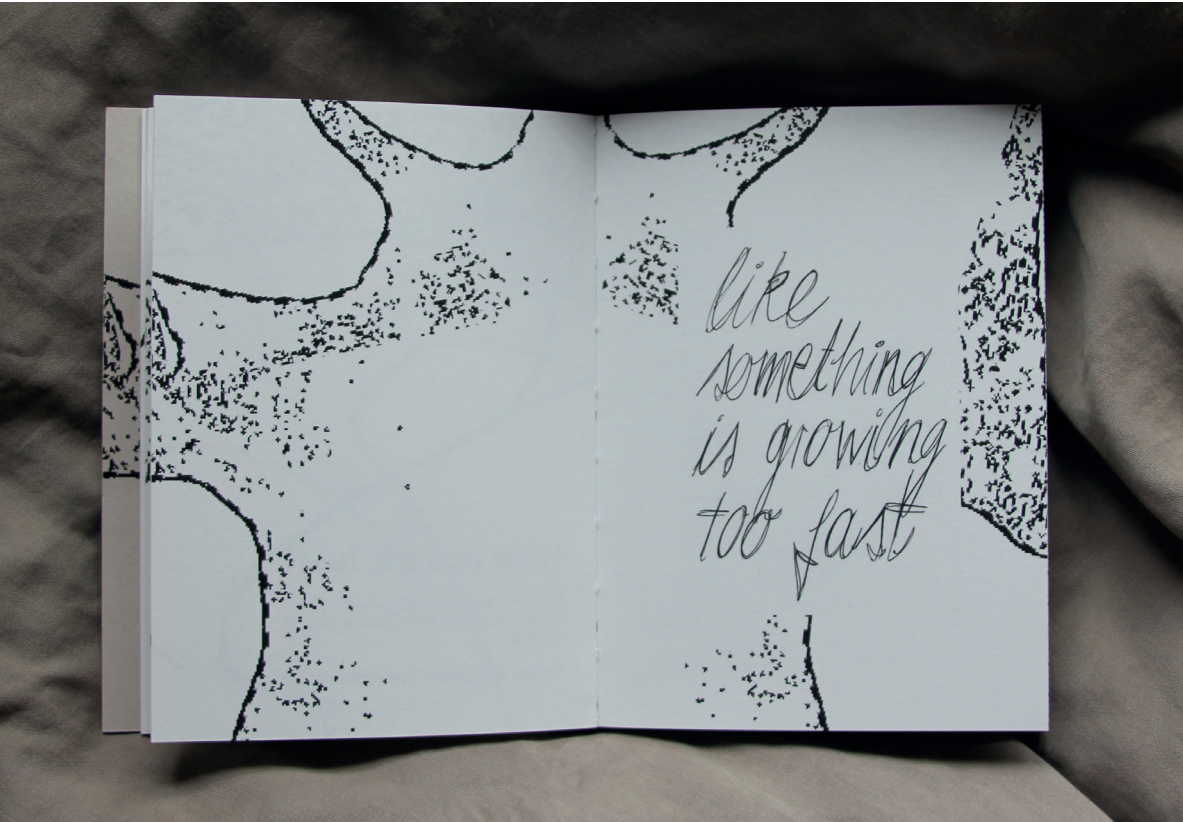 like
something
is growing
too fast